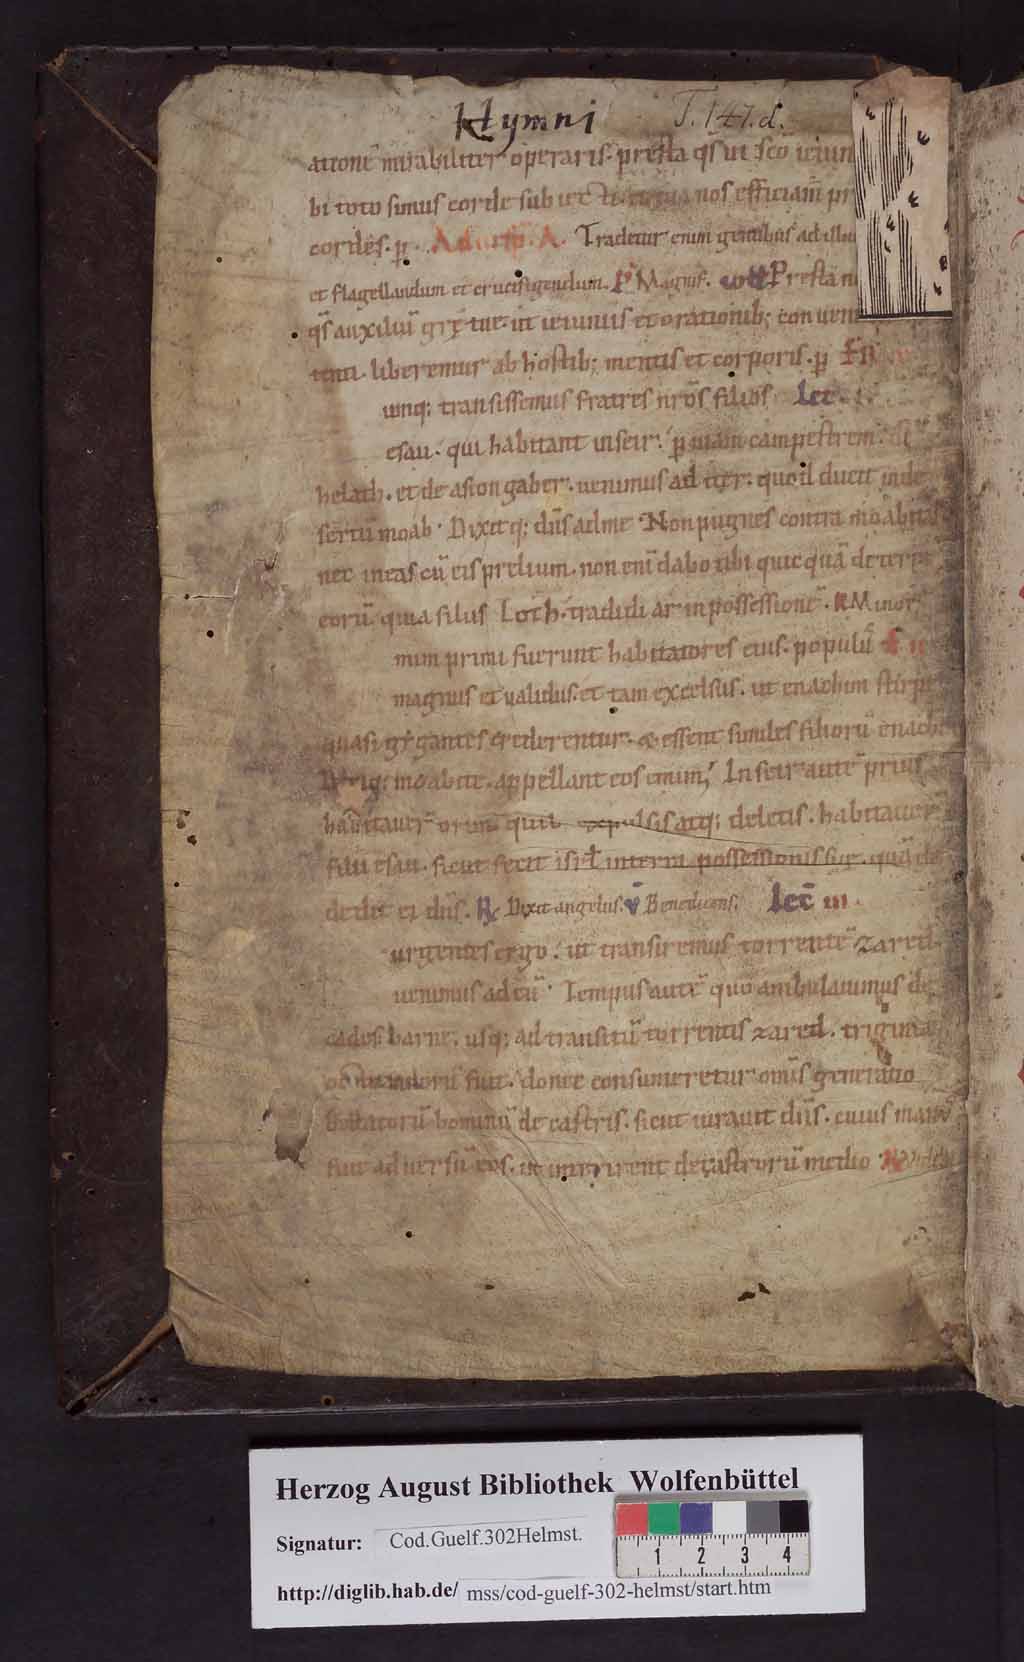 Hymni T. 147. d.
atione mirabiliter operaris. presta qs ut sco ieiun
bi toto simus corde subiecti nos efficiam pr
cordes. p. Ad vesp. A. Tradetur enim gentibus ad illu
et flagellandum et crucifigendum. Ps Magnif. Presta n
qs auxiliu gre tue. ut ieiuniis et orationib; conuen
tenti. liberemur ab hostib; mentis et corporis. p
unq; transissemus fratres nros filios lec
esau. qui habitant in seir. p uiam campestrem.
helath. et de asiongaber. uenimus ad iter. quod ducit inde
sertu moab. Dixitq; dns ad me. Non pugnes contra moabitas
nec ineas cu eis prelium. non eni dabo tibi quicqua de terra
eoru quia filiis Loth. tradidi ar in possessione. R Minor
mim primi fuerunt habitatores eius. populu
magnus et ualidus. et tam excelsus. ut enachim stirpe
quasi gygantes crederentur. et essent similes filioru enachi
moabite. appellant eos emim. In seir aute prius
habitauer expulsis atq; deletis. habitauer
filii esau. sicut fecit isrl in terra possessionis sue. qua
dedit ei dns. R Dixit angelus. V Benedicens. lec iii.
urgentes ergo. ut transiremus torrente zared.
uenimus ad eu. Tempus aute quo ambulauimus de
cades barne. usq; ad transitu torrentis zared. triginta
octo annoru fuit. donec consumeretur omis generatio
bellatoru hominu de castris. sicut iurauit dns. cuius manu
fuit aduersu eos. ut interirent de castroru medio
Herzog August Bibliothek Wolfenbüttel
Signatur: Cod.Guelf.302Helmst.
1 2 3 4
http://diglib.hab.de/ mss/cod-guelf-302-helmst/start.htm